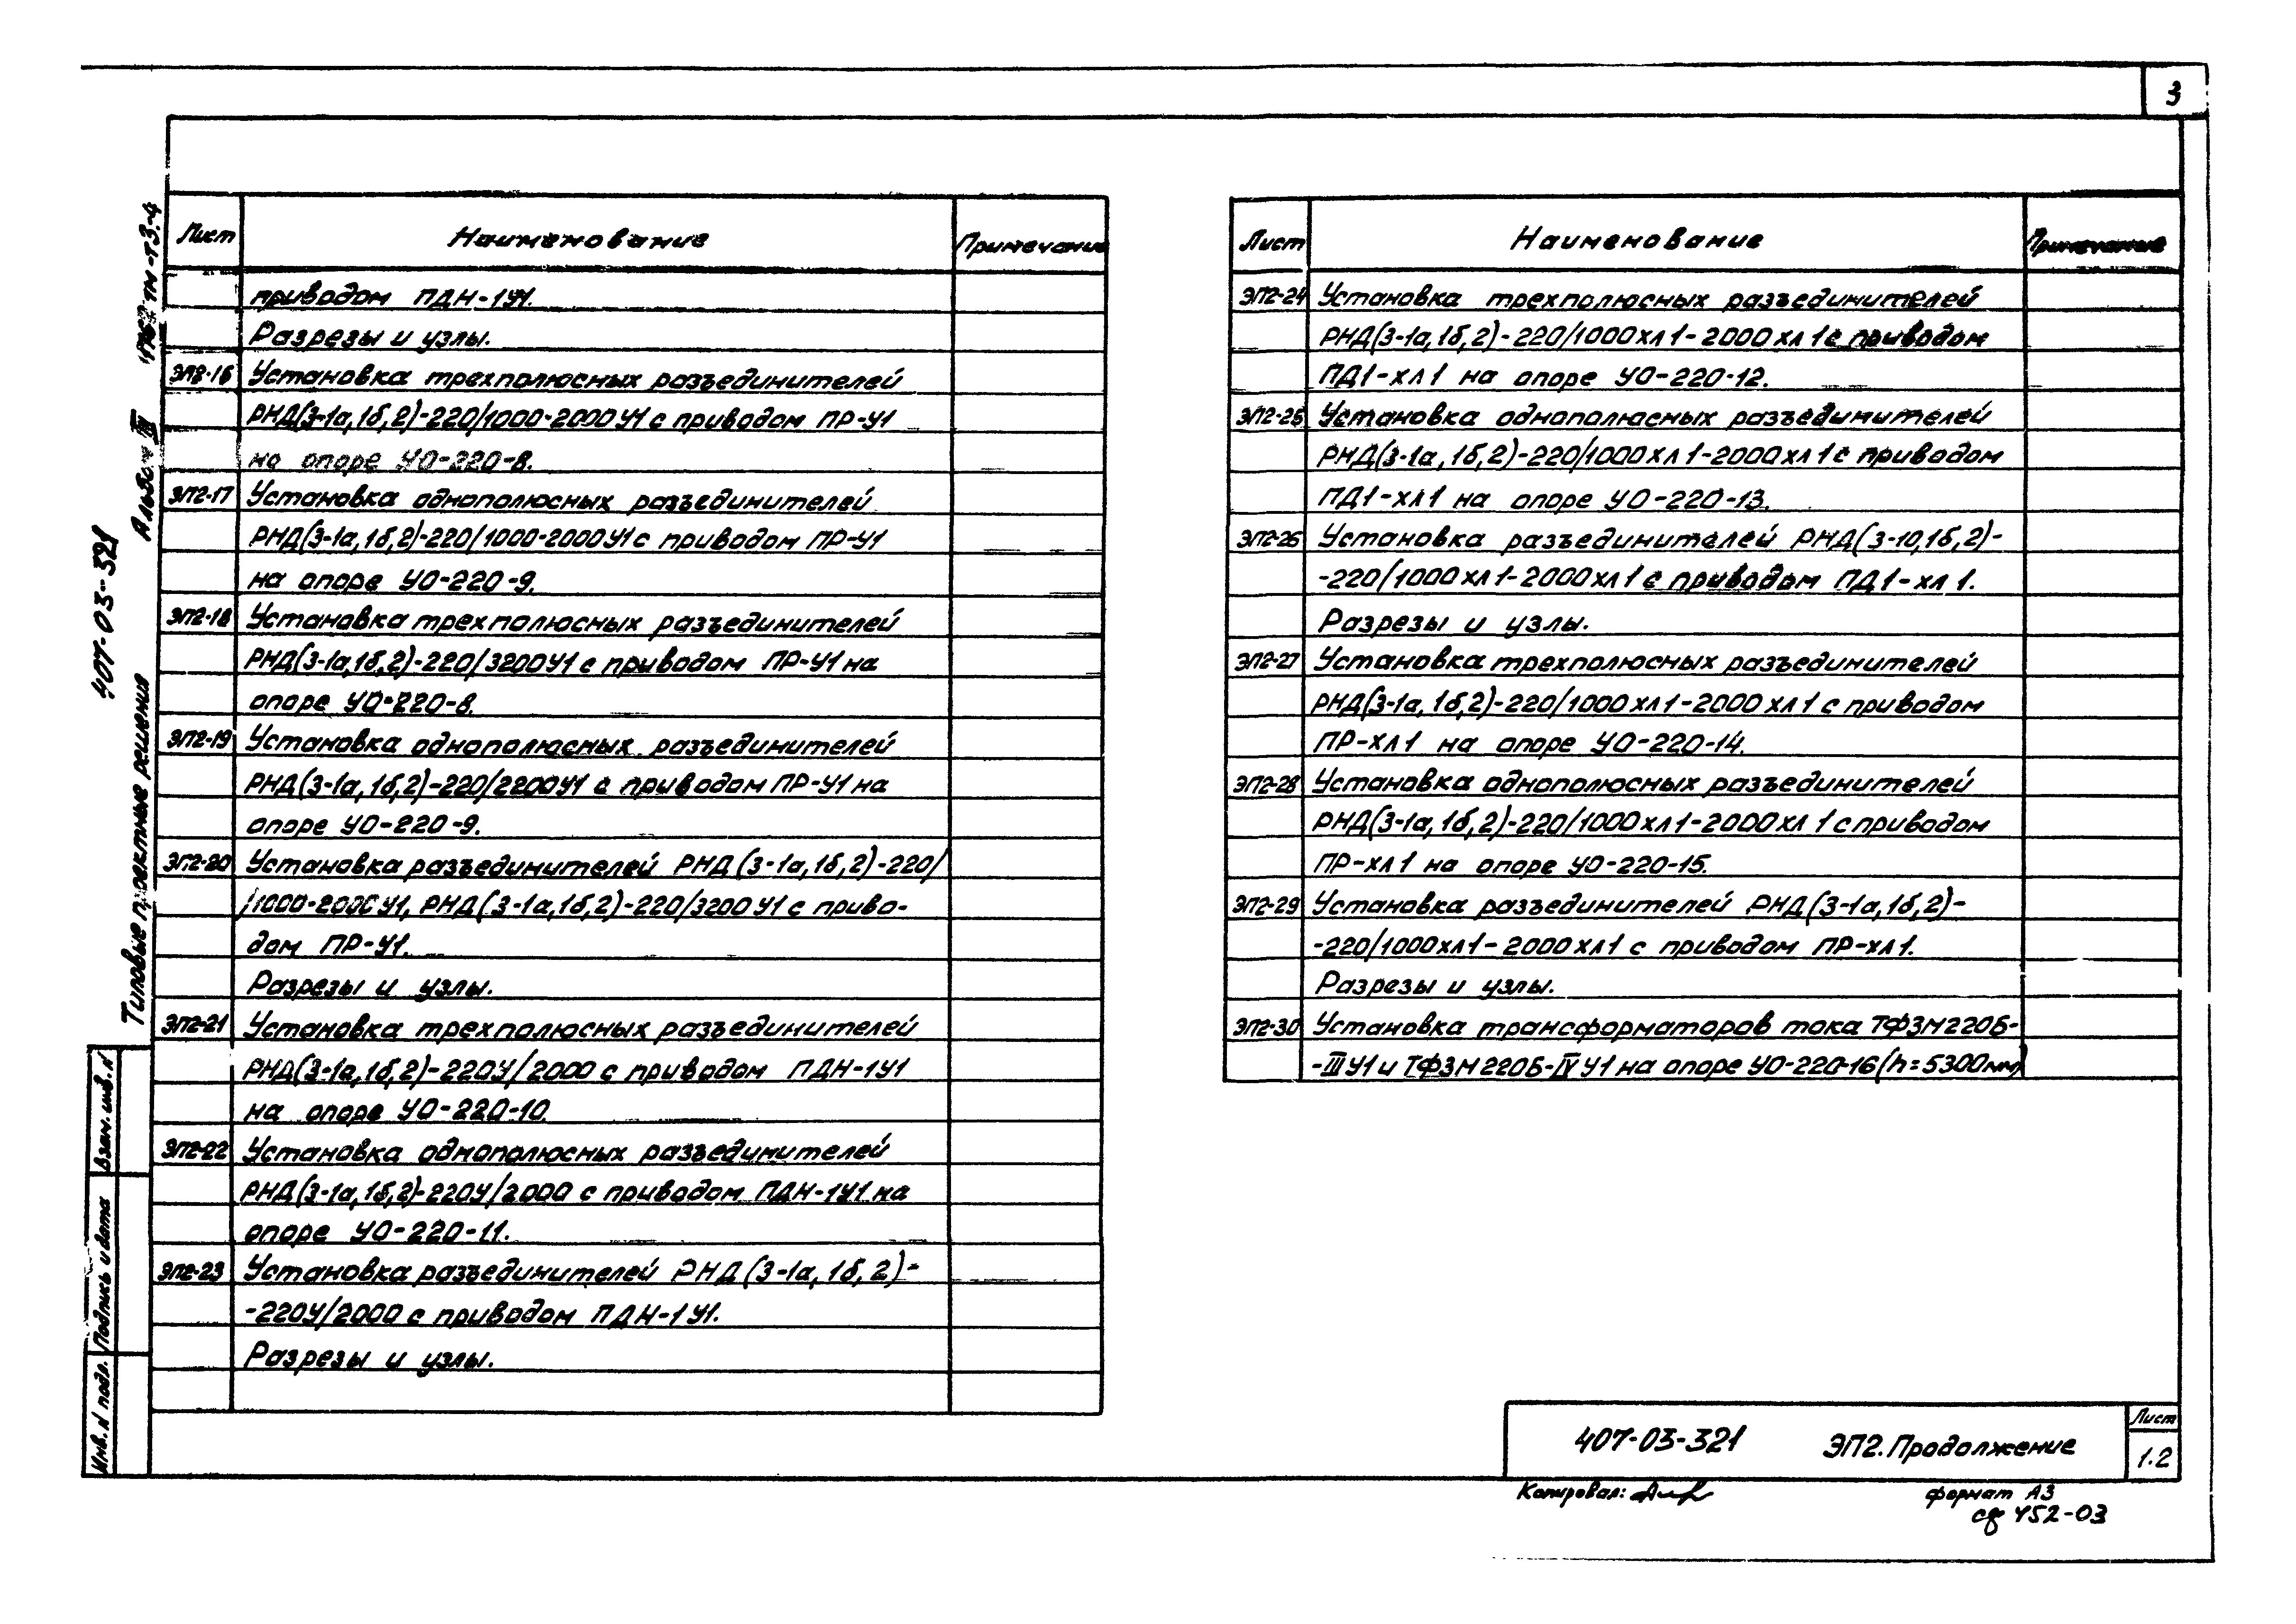 3
Лист Наименование Примечание
приводом ПДН-1У1.
Разрезы и узлы.
ЭП2-16 Установка трехполюсных разъединителей
РНД(3-1а,1б,2)-220/1000-2000У1 с приводом ПР-У1
на опоре УО-220-8.
ЭП2-17 Установка однополюсных разъединителей
РНД(3-1а,1б,2)-220/1000-2000У1 с приводом ПР-У1
на опоре УО-220-9.
ЭП2-18 Установка трехполюсных разъединителей
РНД(3-1а,1б,2)-220/3200У1 с приводом ПР-У1 на
опоре УО-220-8.
ЭП2-19 Установка однополюсных разъединителей
РНД(3-1а,1б,2)-220/2200У1 с приводом ПР-У1 на
опоре УО-220-9.
ЭП2-20 Установка разъединителей РНД(3-1а,1б,2)-220/
/1000-2000У1, РНД(3-1а,1б,2)-220/3200У1 с приво-
дом ПР-У1.
Разрезы и узлы.
ЭП2-21 Установка трехполюсных разъединителей
РНД(3-1а,1б,2)-220У/2000 с приводом ПДН-1У1
на опоре УО-220-10.
ЭП2-22 Установка однополюсных разъединителей
РНД(3-1а,1б,2)-220У/2000 с приводом ПДН-1У1 на
опоре УО-220-11.
ЭП2-23 Установка разъединителей РНД(3-1а,1б,2)-
-220У/2000 с приводом ПДН-1У1.
Разрезы и узлы.
Лист Наименование Примечание
ЭП2-24 Установка трехполюсных разъединителей
РНД(3-1а,1б,2)-220/1000хл1-2000хл1 с приводом
ПД1-хл1 на опоре УО-220-12.
ЭП2-25 Установка однополюсных разъединителей
РНД(3-1а,1б,2)-220/1000хл1-2000хл1 с приводом
ПД1-хл1 на опоре УО-220-13.
ЭП2-26 Установка разъединителей РНД(3-10,1б,2)-
-220/1000хл1-2000хл1 с приводом ПД1-хл1.
Разрезы и узлы.
ЭП2-27 Установка трехполюсных разъединителей
РНД(3-1а,1б,2)-220/1000хл1-2000хл1 с приводом
ПР-хл1 на опоре УО-220-14.
ЭП2-28 Установка однополюсных разъединителей
РНД(3-1а,1б,2)-220/1000хл1-2000хл1 с приводом
ПР-хл1 на опоре УО-220-15.
ЭП2-29 Установка разъединителей РНД(3-1а,1б,2)-
-220/1000хл1-2000хл1 с приводом ПР-хл1.
Разрезы и узлы.
ЭП2-30 Установка трансформаторов тока ТФЗМ220Б-
-III У1 и ТФЗМ220Б-IV У1 на опоре УО-220-16 (h=5300мм)
407-03-321 ЭП2. Продолжение
Лист
1.2
Копировал:
формат А3
сф 452-03
407-03-321
Типовые проектные решения Альбом III ТМ-Т3-4
Взам. инв. N
Подпись и дата
Инв. N подл.